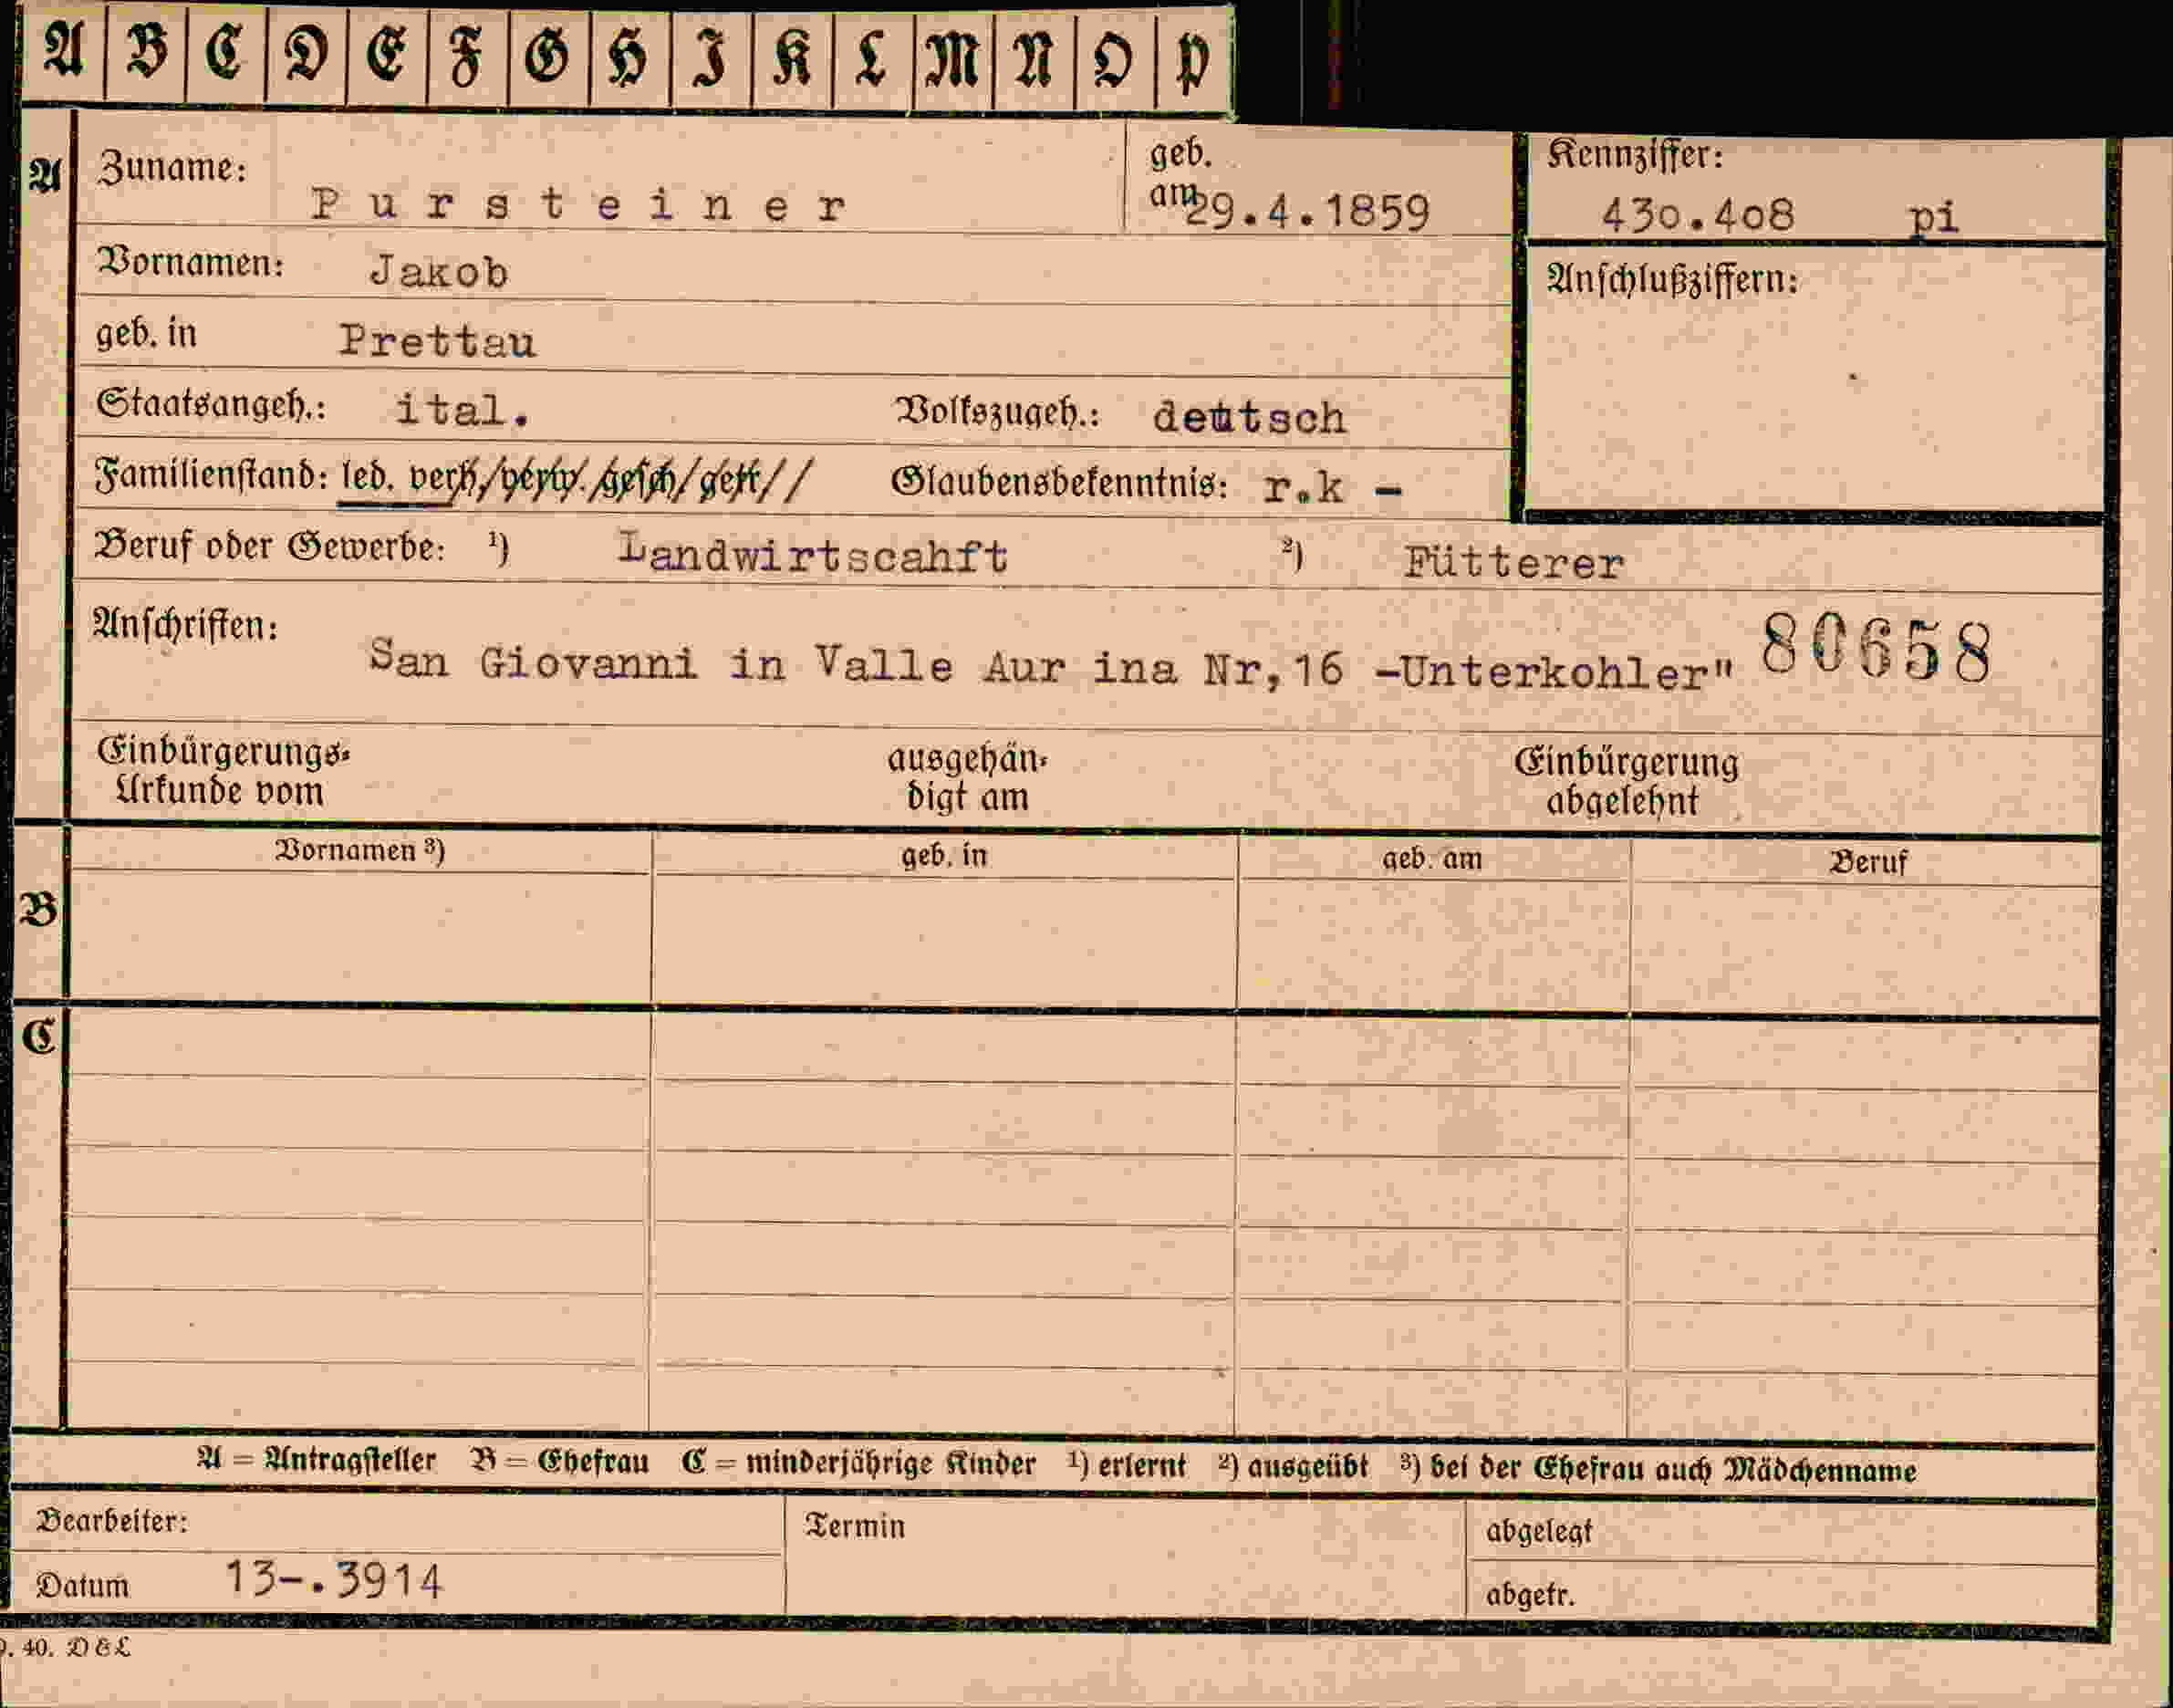 A B C D E F G H I K L M N O P
A Zuname: Pursteiner geb. am 29.4.1859 Kennziffer: 430.408 pi
Vornamen: Jakob Anschlußziffern:
geb. in Prettau
Staatsangeh.: ital. Volkszugeh.: deutsch
Familienstand: led. verh./verw./gesch/getr// Glaubensbekenntnis: r.k -
Beruf oder Gewerbe: 1) Landwirtscahft 2) Fütterer
Anschriften: San Giovanni in Valle Aur ina Nr,16 -Unterkohler" 80658
Einbürgerungs-Urkunde vom ausgehän-digt am Einbürgerung abgelehnt
Vornamen 3) geb. in geb. am Beruf
B
C
A = Antragsteller B = Ehefrau C = minderjährige Kinder 1) erlernt 2) ausgeübt 3) bei der Ehefrau auch Mädchenname
Bearbeiter: Termin abgelegt
Datum 13-.3914 abgetr.
40. D&L